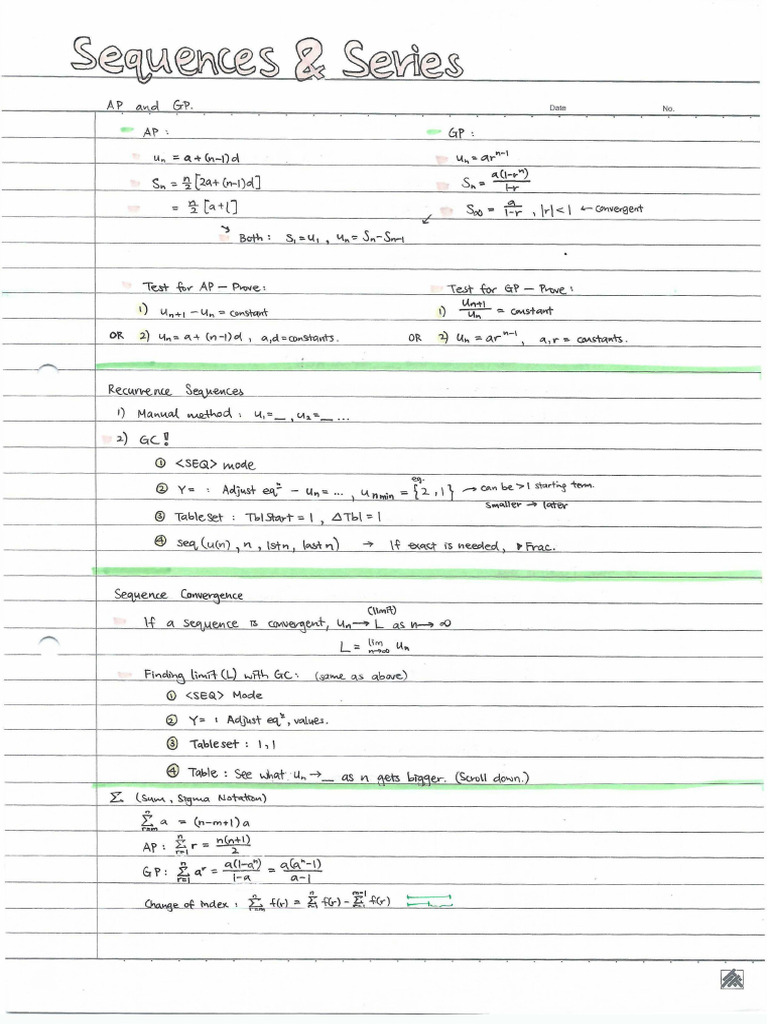 Sequences & Series
AP and GP.
Date
No.
AP :
uₙ = a + (n-1)d
Sₙ = n/2 [2a + (n-1)d]
= n/2 [a + l]
GP :
uₙ = arⁿ⁻¹
Sₙ = a(1-rⁿ)/1-r
S∞ = a/1-r , |r| < 1 ← convergent
Both : S₁ = u₁ , uₙ = Sₙ - Sₙ₋₁
Test for AP – Prove :
1) uₙ₊₁ - uₙ = constant
OR 2) uₙ = a + (n-1)d , a,d = constants.
Test for GP – Prove :
1) uₙ₊₁/uₙ = constant
OR 2) uₙ = arⁿ⁻¹, a,r = constants.
Recurrence Sequences
1) Manual method : u₁ = _ , u₂ = _ ...
2) GC!
① <SEQ> mode
② Y= : Adjust eqⁿ - uₙ = ... , uₙmin = {2,1} → can be >1 starting term.
eg.
smaller → later
③ Tableset : TblStart = 1 , ΔTbl = 1
④ seq (u(n) , n , 1st n , last n) → If exact is needed, ▶Frac.
Sequence Convergence
If a sequence is convergent, uₙ → L as n → ∞
(limit)
L = lim n→∞ uₙ
Finding limit (L) with GC : (same as above)
① <SEQ> Mode
② Y= : Adjust eqⁿ, values.
③ Tableset : 1,1
④ Table : See what uₙ → _ as n gets bigger. (Scroll down.)
Σ (Sum, Sigma Notation)
ⁿΣr=m a = (n-m+1)a
AP : ⁿΣr=1 r = n(n+1)/2
GP : ⁿΣr=1 aʳ = a(1-aⁿ)/1-a = a(aⁿ-1)/a-1
Change of index : ⁿΣr=m f(r) = ⁿΣr=1 f(r) - ᵐ⁻¹Σr=1 f(r)